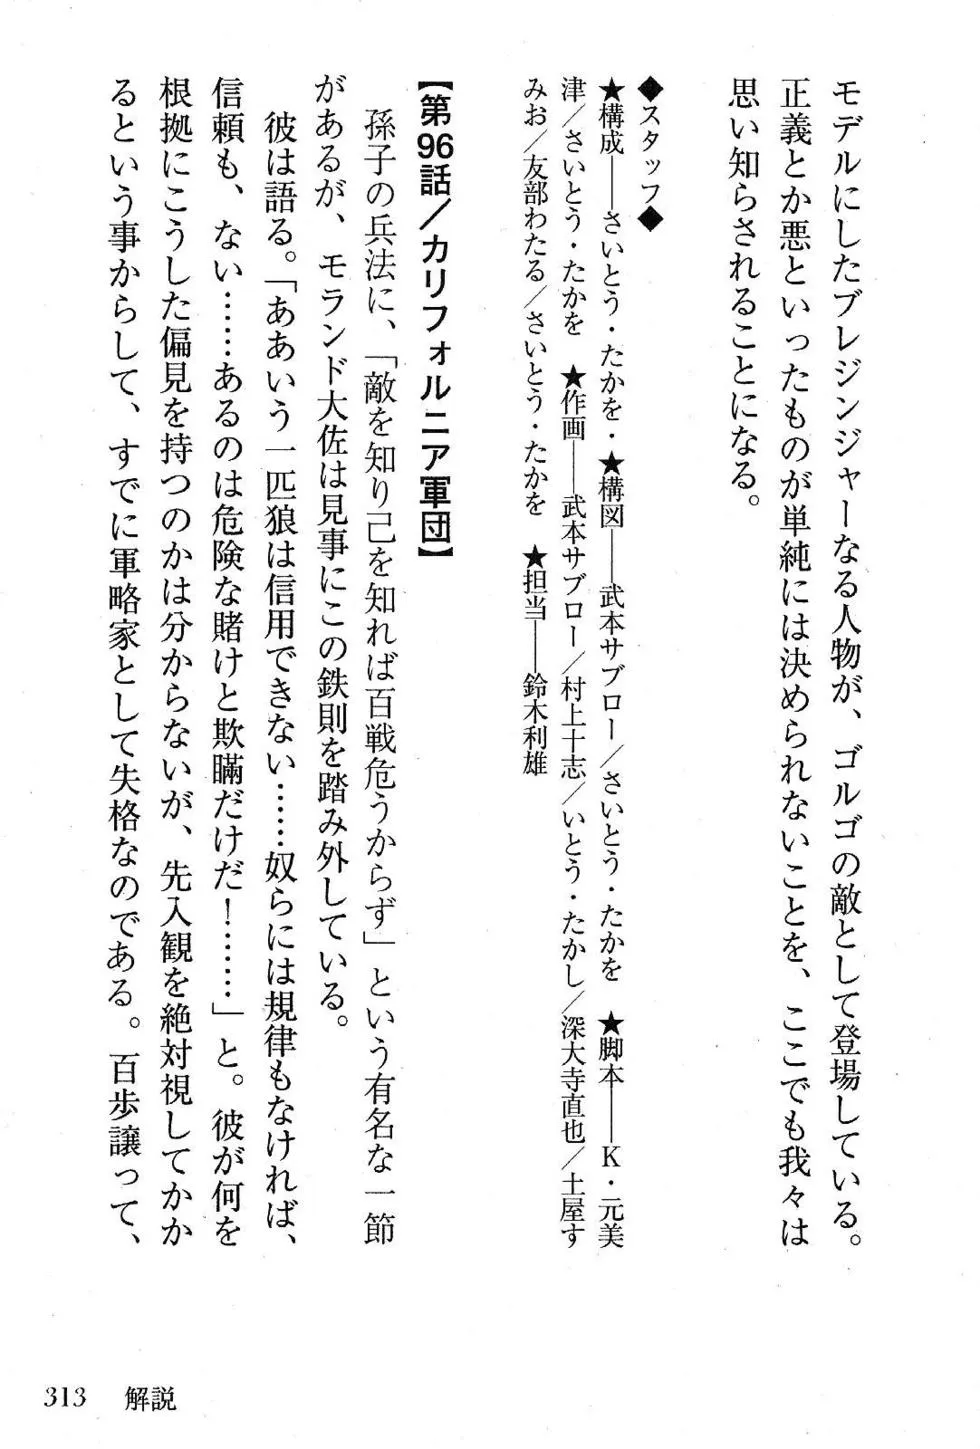 モデルにしたブレジンジャーなる人物が、ゴルゴの敵として登場している。
正義とか悪といったものが単純には決められないことを、ここでも我々は
思い知らされることになる。
◆スタッフ◆
★構成──さいとう・たかを・★構図──武本サブロー/さいとう・たかを ★脚本──K・元美
津/さいとう・たかを ★作画──武本サブロー/村上十志/いとう・たかし/深大寺直也/土屋す
みお/友部わたる/さいとう・たかを ★担当──鈴木利雄
【第96話/カリフォルニア軍団】
孫子の兵法に、「敵を知り己を知れば百戦危うからず」という有名な一節
があるが、モランド大佐は見事にこの鉄則を踏み外している。
彼は語る。「ああいう一匹狼は信用できない……奴らには規律もなければ、
信頼も、ない……あるのは危険な賭けと欺瞞だけだ!……」と。彼が何を
根拠にこうした偏見を持つのかは分からないが、先入観を絶対視してかか
るという事からして、すでに軍略家として失格なのである。百歩譲って、
313 解説